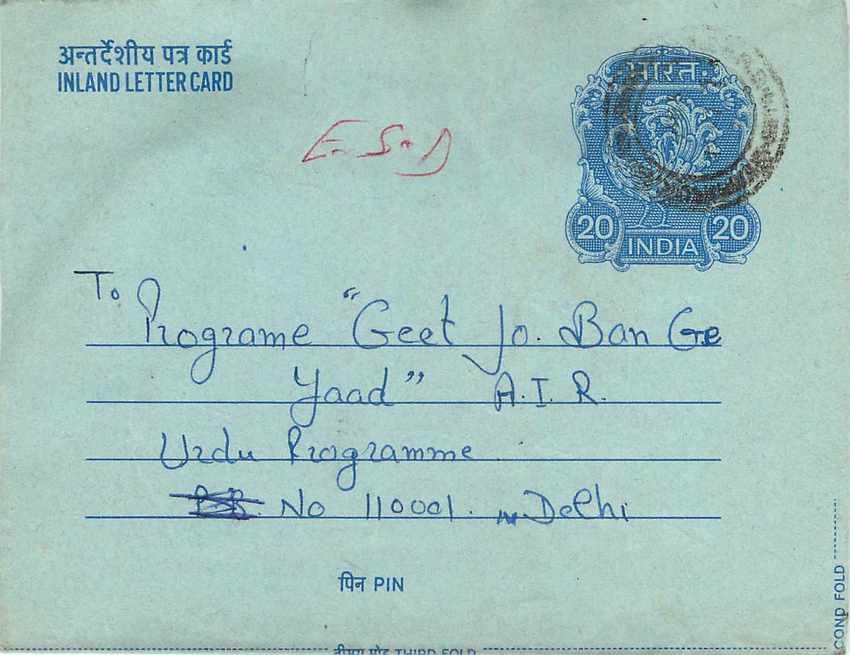 अन्तर्देशीय पत्र कार्ड
INLAND LETTER CARD
भारत
20 20
INDIA
E.S.D
To
Programe "Geet Jo. Ban Ge
Yaad" A.I.R.
Urdu Programme
No 110001. Delhi
पिन PIN
THIRD FOLD
SECOND FOLD